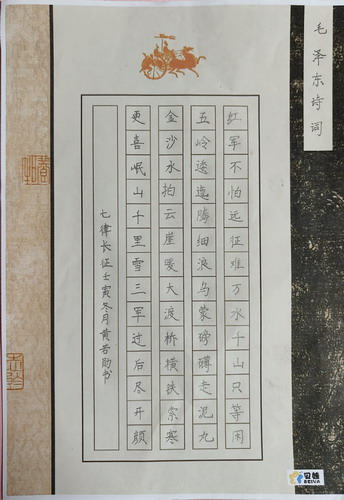 毛泽东诗词
红军不怕远征难万水千山只等闲
五岭逶迤腾细浪乌蒙磅礴走泥丸
金沙水拍云崖暖大渡桥横铁索寒
更喜岷山千里雪三军过后尽开颜
七律长征壬寅冬月黄若书